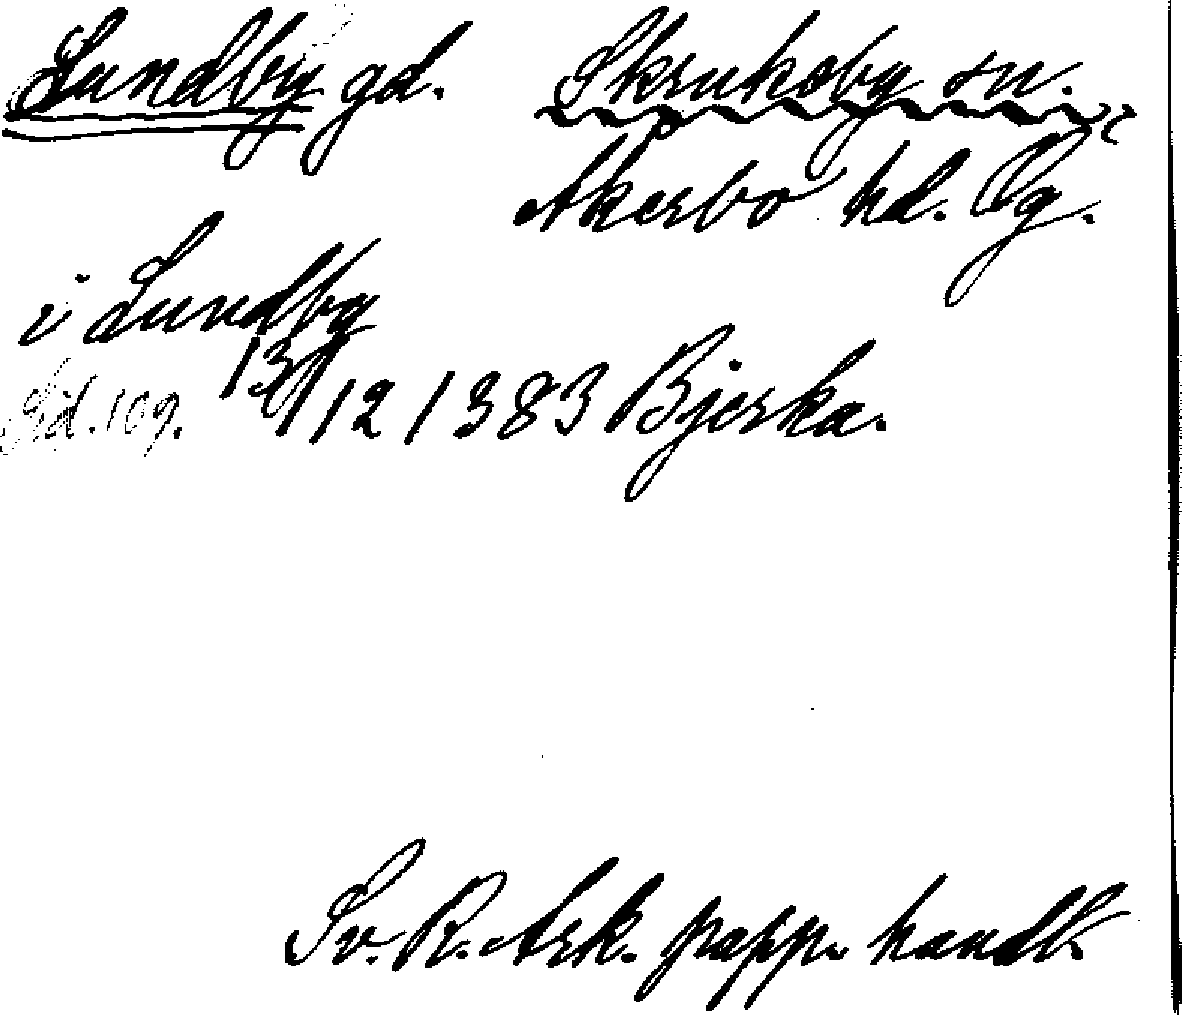 Lundby gd. Skrukeby sn.
Åkerbo hd. Ög.
i Lundby
Gd. 109. 13/12 1383 Bjerka.
Sv. R. Ark. papp. handl.